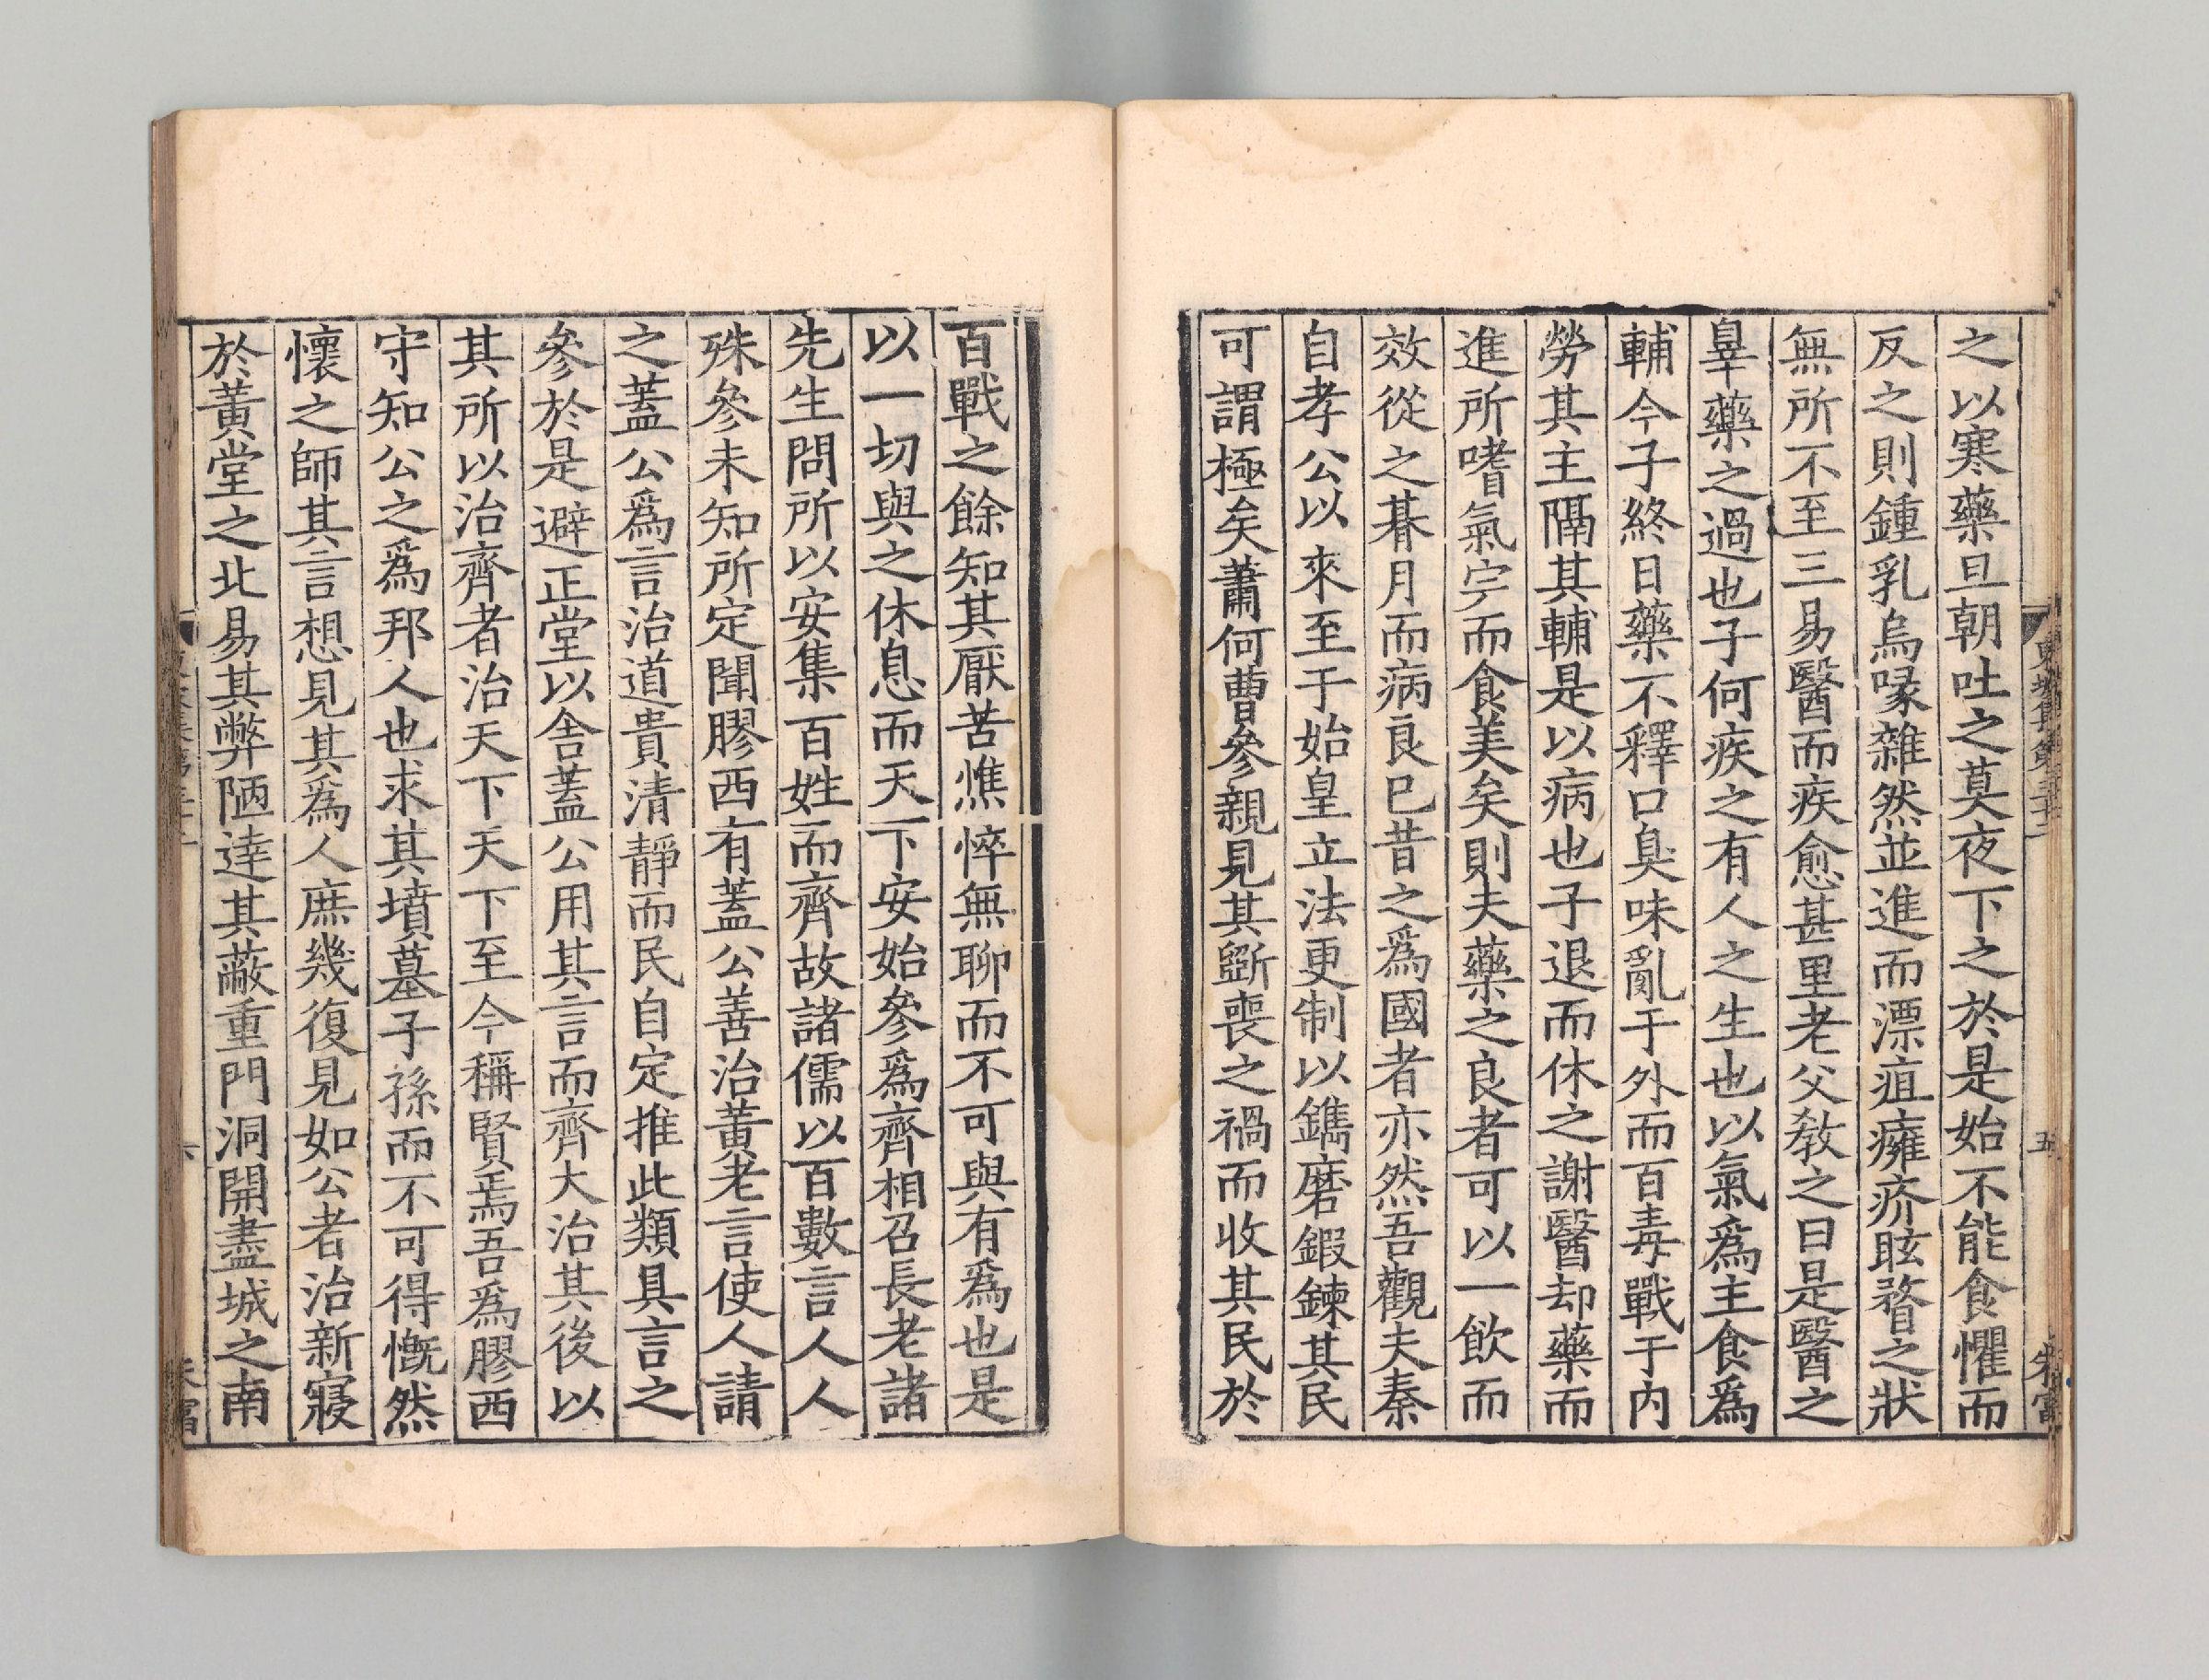 之以寒藥旦朝吐之莫夜下之於是始不能食懼而
反之則鍾乳烏喙雜然並進而漂疽癰疥眩瞀之狀
無所不至三易醫而疾愈甚里老父敎之曰是醫之
辠藥之過也子何疾之有人之生也以氣爲主食爲
輔今子終日藥不釋口臭味亂于外而百毒戰于内
勞其主隔其輔是以病也子退而休之謝醫却藥而
進所嗜氣完而食美矣則夫藥之良者可以一飲而
效從之朞月而病良已昔之爲國者亦然吾觀夫秦
自孝公以來至于始皇立法更制以鐫磨鍜鍊其民
可謂極矣蕭何曹參親見其斵喪之禍而收其民於
百戰之餘知其厭苦憔悴無聊而不可與有爲也是
以一切與之休息而天下安始參爲齊相召長老諸
先生問所以安集百姓而齊故諸儒以百數言人人
殊參未知所定聞膠西有蓋公善治黃老言使人請
之蓋公爲言治道貴清靜而民自定推此類具言之
參於是避正堂以舎蓋公用其言而齊大治其後以
其所以治齊者治天下天下至今稱賢焉吾爲膠西
守知公之爲邦人也求其墳墓子孫而不可得慨然
懷之師其言想見其爲人庶幾復見如公者治新寢
於黃堂之北易其弊陋達其蔽重門洞開盡城之南